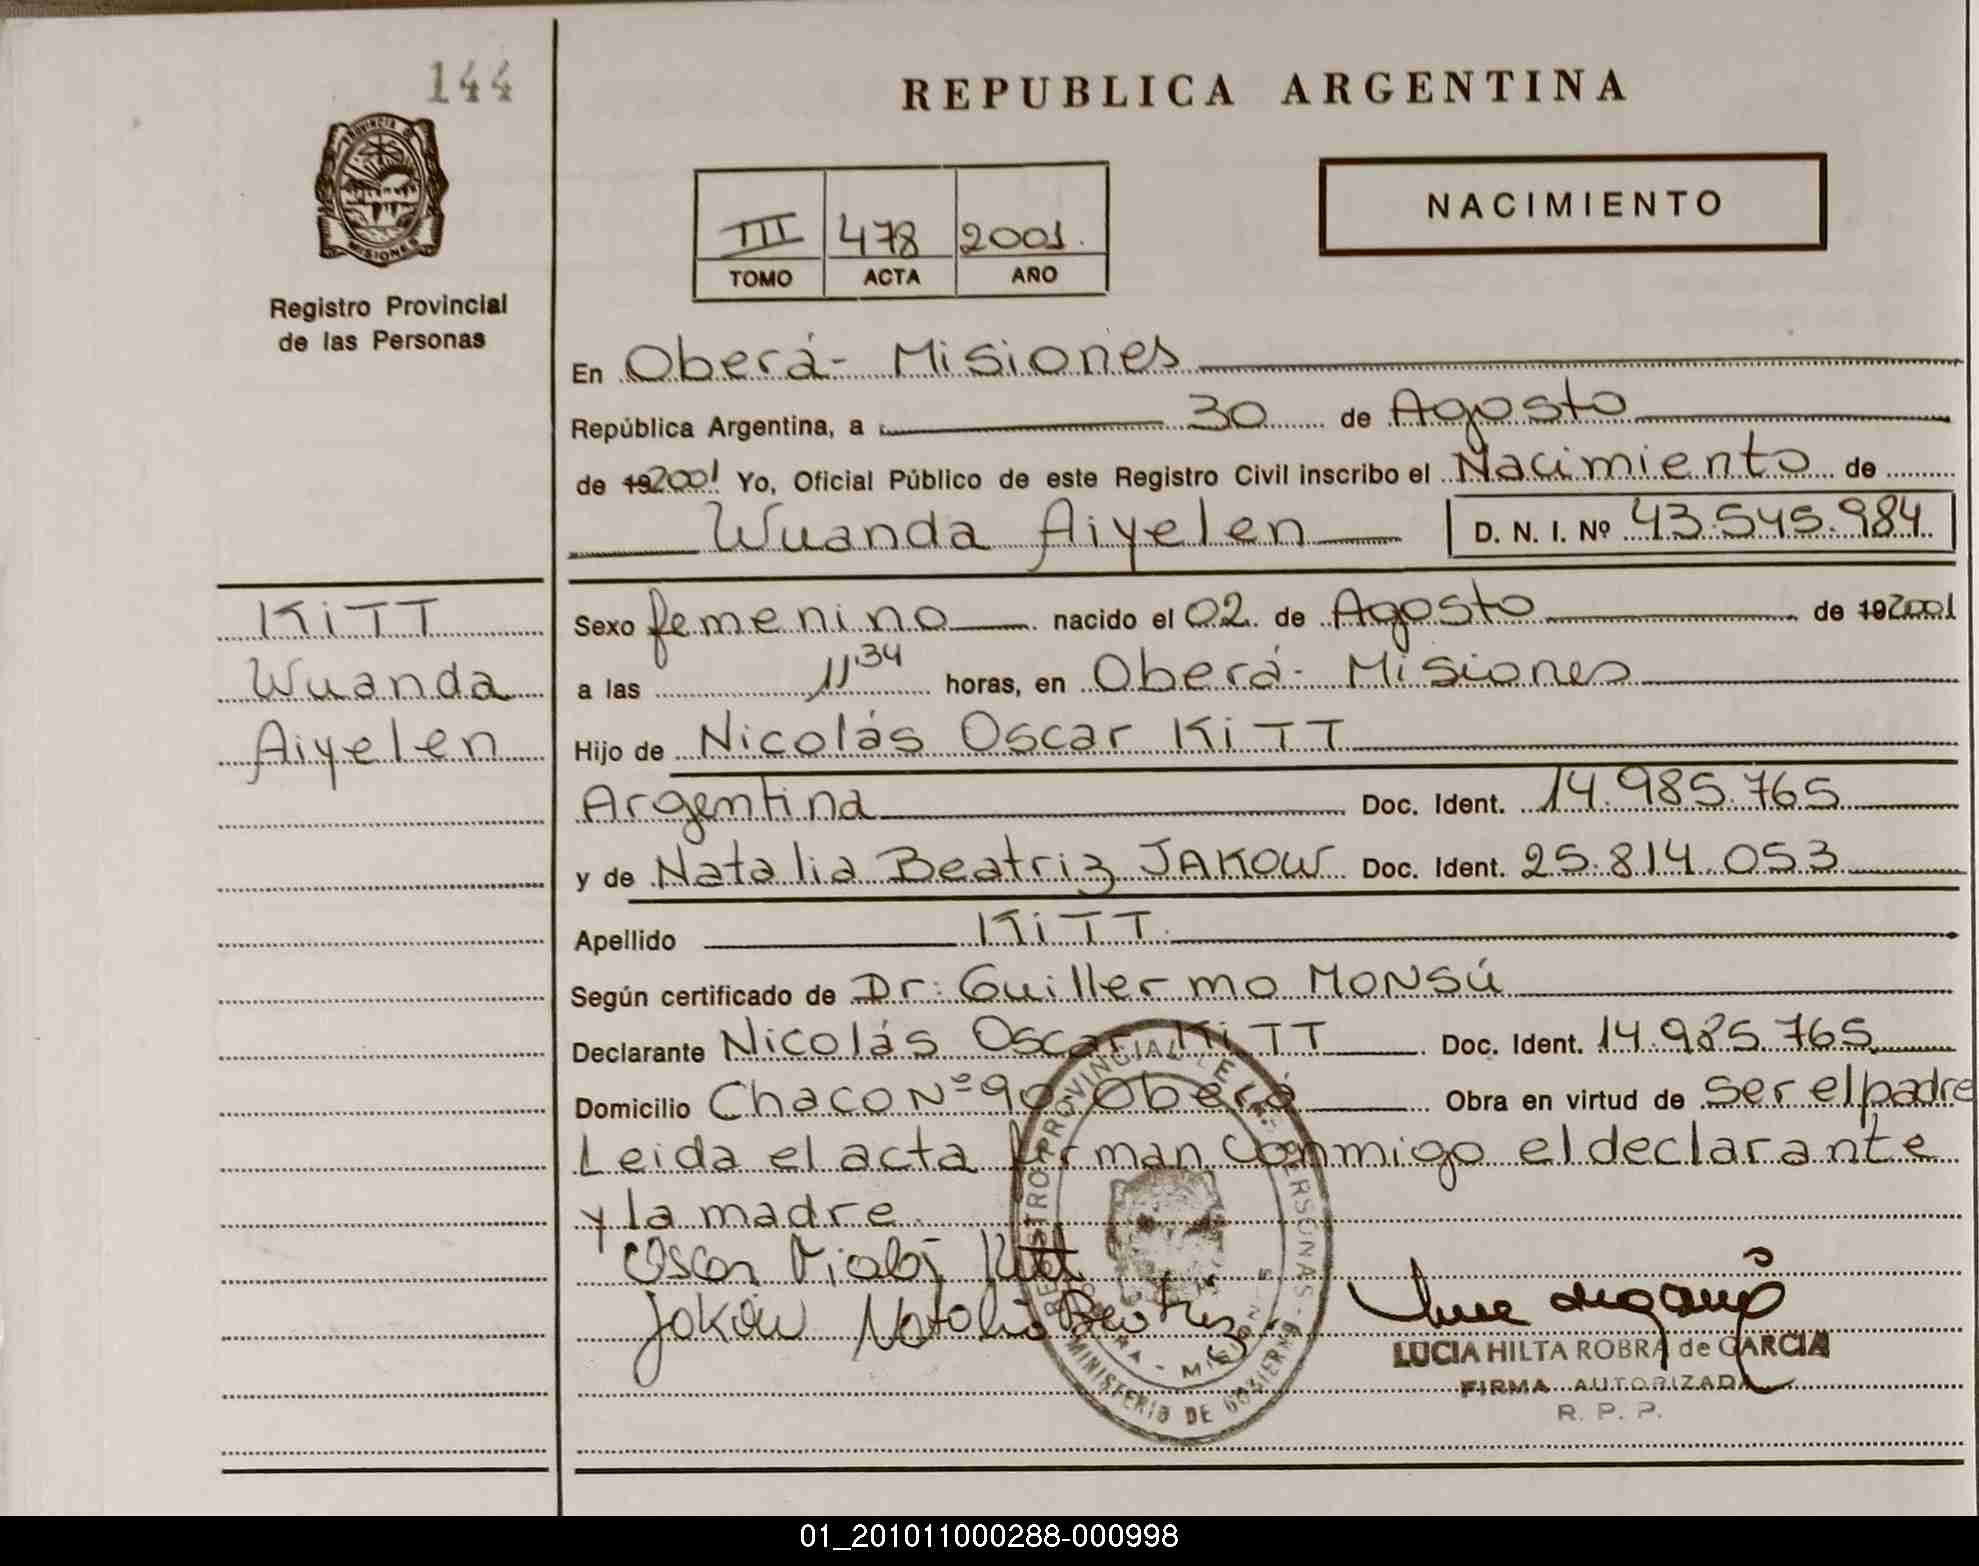 144
REPUBLICA ARGENTINA
PROVINCIA DE
MISIONES
Registro Provincial
de las Personas
III 478 2001.
TOMO ACTA AÑO
NACIMIENTO
En Oberá- Misiones
República Argentina, a 30 de Agosto
de 192001 Yo, Oficial Público de este Registro Civil inscribo el Nacimiento de
Wuanda Aiyelen D. N. I. Nº 43.545.984
KiTT
Wuanda
Aiyelen
Sexo femenino nacido el 02 de Agosto de 192001
a las 11:34 horas, en Oberá- Misiones
Hijo de Nicolás Oscar KiTT
Argentina Doc. Ident. 14.985.765
y de Natalia Beatriz JAKOW Doc. Ident. 25.814.053
Apellido KiTT
Según certificado de Dr: Guillermo MONSÚ
Declarante Nicolás Oscar KiTT Doc. Ident. 14.985.765
Domicilio Chaco Nº 90 Oberá Obra en virtud de ser el padre
Leida el acta firman conmigo el declarante
y la madre
Oscar Kitt
Jakow Natalia Beatriz
REGISTRO PROVINCIAL DE LAS PERSONAS
MINISTERIO DE GOBIERNO
LUCIA HILTA ROBRA de GARCIA
FIRMA AUTORIZADA
R. P. P.
01_201011000288-000998